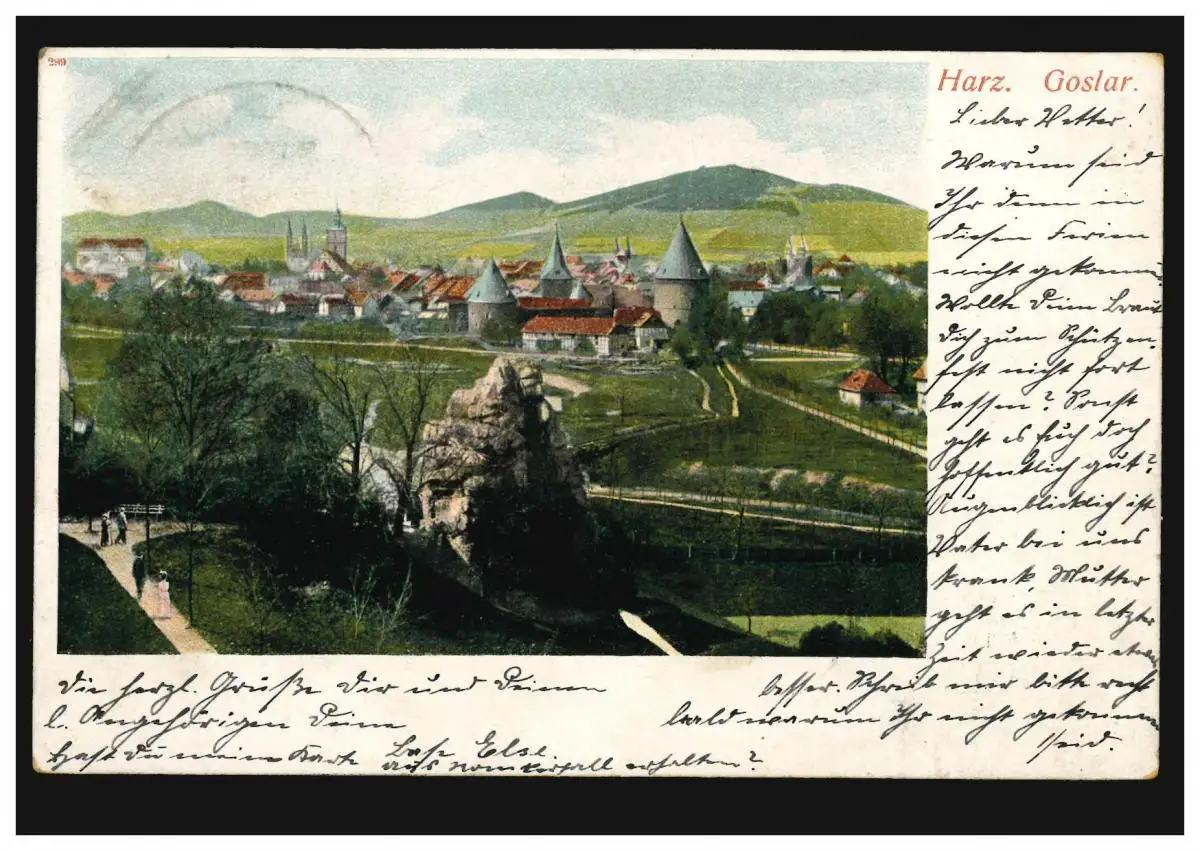 289
Harz. Goslar.
Lieber Vetter!
Warum seid
Ihr denn in
diesen Ferien
nicht gekommen
Wollte Deine Braut
Dich zum Schützen-
fest nicht fort
lassen? Sonst
geht es Euch doch
hoffentlich gut?
Augenblicklich ist
Vater bei uns
krank, Mutter
geht es in letzter
Zeit wieder etwas
besser. Schreib mir bitte recht
bald warum Ihr nicht gekommen
seid.
Die herzl. Grüße Dir und Deinen
l. Angehörigen Deine
Base Else.
Hast Du meine Karte aus erhalten?